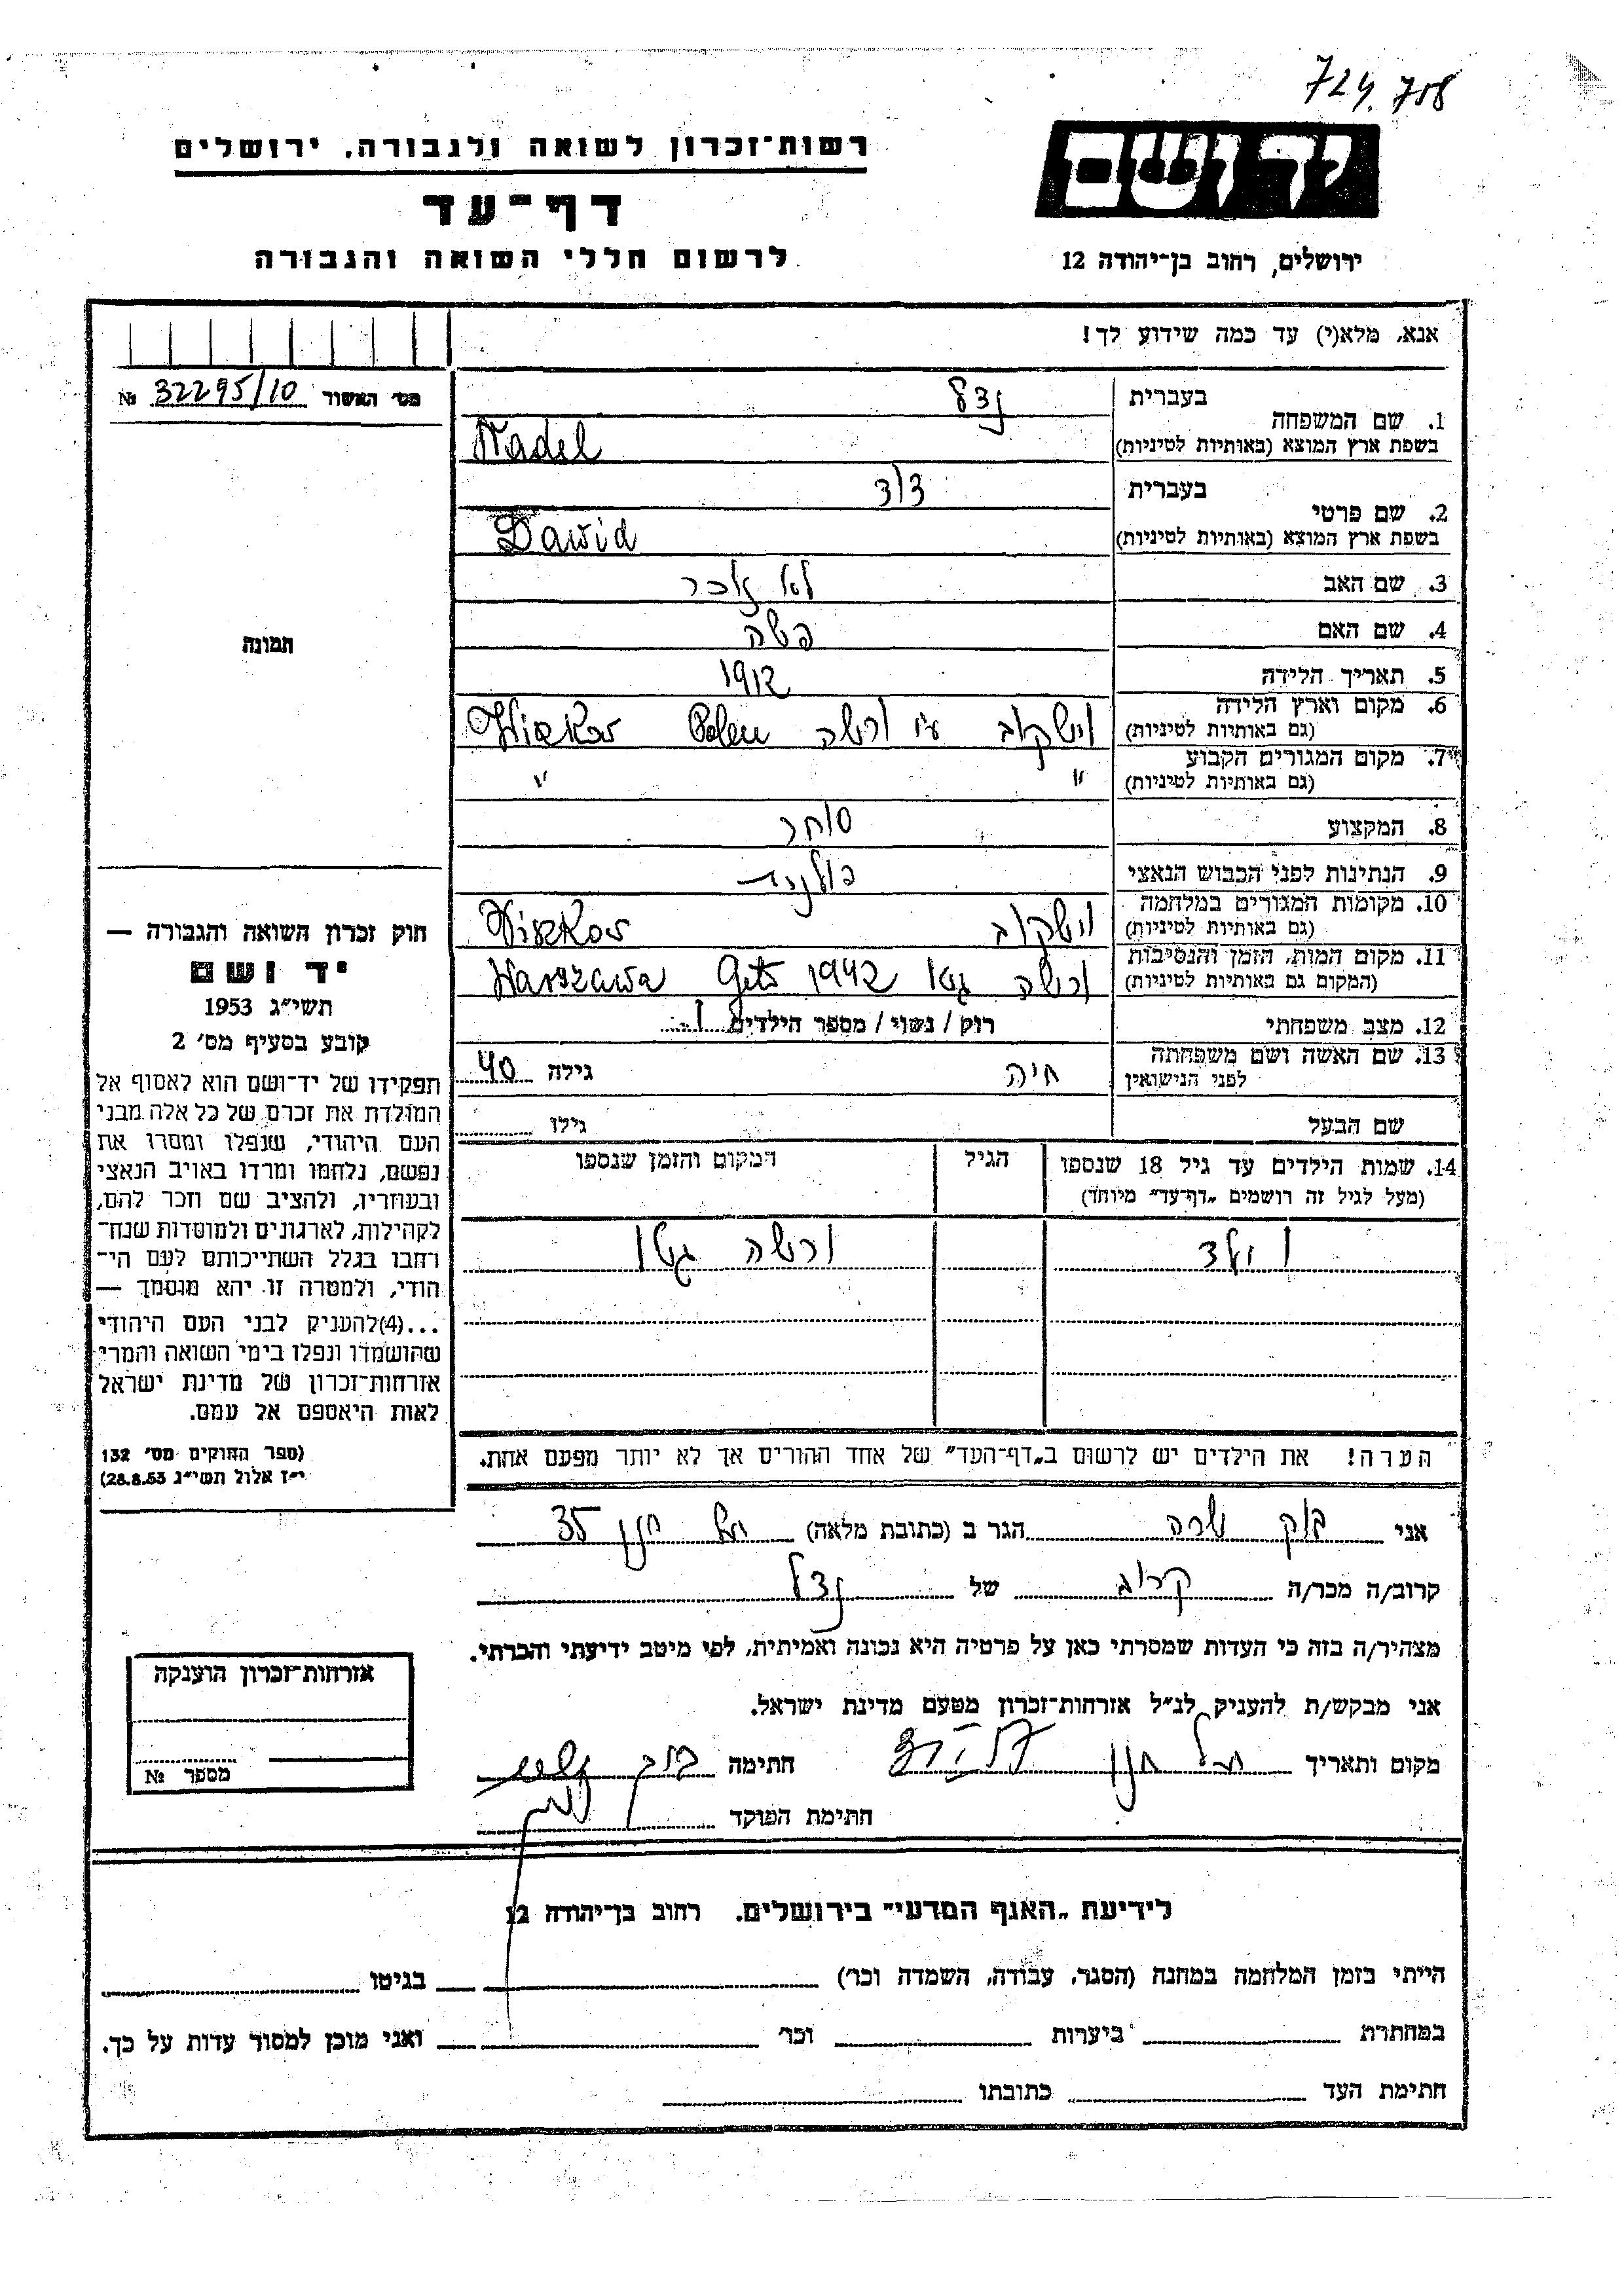 724.708
רשות־זכרון לשואה ולגבורה, ירושלים
דף־עד
לרשום חללי השואה והגבורה
יד ושם
ירושלים, רחוב בן־יהודה 12
אנא, מלא(י) עד כמה שידוע לך!
מס' האשור 32295/10 №
תמונה
חוק זכרון השואה והגבורה —
יד ושם
תשי״ג 1953
קובע בסעיף מס׳ 2
תפקידו של יד־ושם הוא לאסוף אל
המולדת את זכרם של כל אלה מבני
העם היהודי, שנפלו ומסרו את
נפשם, נלחמו ומרדו באויב הנאצי
ובעוזריו, ולהציב שם וזכר להם,
לקהילות, לארגונים ולמוסדות שנח־
רחבו בגלל השתייכותם לעם הי־
הודי, ולמטרה זו יהא מוסמך —
...(4)להעניק לבני העם היהודי
שהושמדו ונפלו בימי השואה והמרי
אזרחות־זכרון של מדינת ישראל
לאות היאספם אל עמם.
(ספר החוקים מס׳ 132
י״ז אלול תשי״ג 28.8.53)
בעברית נדל
1. שם המשפחה
בשפת ארץ המוצא (באותיות לטיניות) Nadel
בעברית דוד
2. שם פרטי
בשפת ארץ המוצא (באותיות לטיניות) Dawid
3. שם האב לא אזכר
4. שם האם
5. תאריך הלידה 1912
6. מקום וארץ הלידה
(גם באותיות לטיניות) וישקוב ע״י ורשה Polen Wiszkov
7. מקום המגורים הקבוע
(גם באותיות לטיניות) " "
8. המקצוע סוחר
9. הנתינות לפני הכבוש הנאצי פולנית
10. מקומות המגורים במלחמה
(גם באותיות לטיניות) וישקוב Viszkov
11. מקום המות, הזמן והנסיבות
(המקום גם באותיות לטיניות) ורשה גטו 1942 Geto Warszawa
12. מצב משפחתי רוק / נשוי / מספר הילדים 1
13. שם האשה ושם משפחתה
לפני הנישואין חיה גילה 40
שם הבעל גילו
14. שמות הילדים עד גיל 18 שנספו הגיל המקום והזמן שנספו
(מעל לגיל זה רושמים „דף־עד״ מיוחד)
1 ילד ורשה גטו
הערה! את הילדים יש לרשום ב„דף־העד״ של אחד ההורים אך לא יותר מפעם אחת.
אני שרה הגר ב (כתובת מלאה) תל חנן 35
קרוב/ה מכר/ה קרוב של נדל
מצהיר/ה בזה כי העדות שמסרתי כאן על פרטיה היא נכונה ואמיתית, לפי מיטב ידיעתי והכרתי.
אני מבקש/ת להעניק לנ״ל אזרחות־זכרון מטעם מדינת ישראל.
מקום ותאריך תל חנן חתימה
חתימת הפוקד
אזרחות־זכרון הוענקה
מספר №
לידיעת „האגף המדעי״ בירושלים. רחוב בן־יהודה 12
הייתי בזמן המלחמה במחנה (הסגר, עבודה, השמדה וכר׳) בגיטו
במחתרת ביערות וכר׳ ואני מוכן למסור עדות על כך.
חתימת העד כתובתו